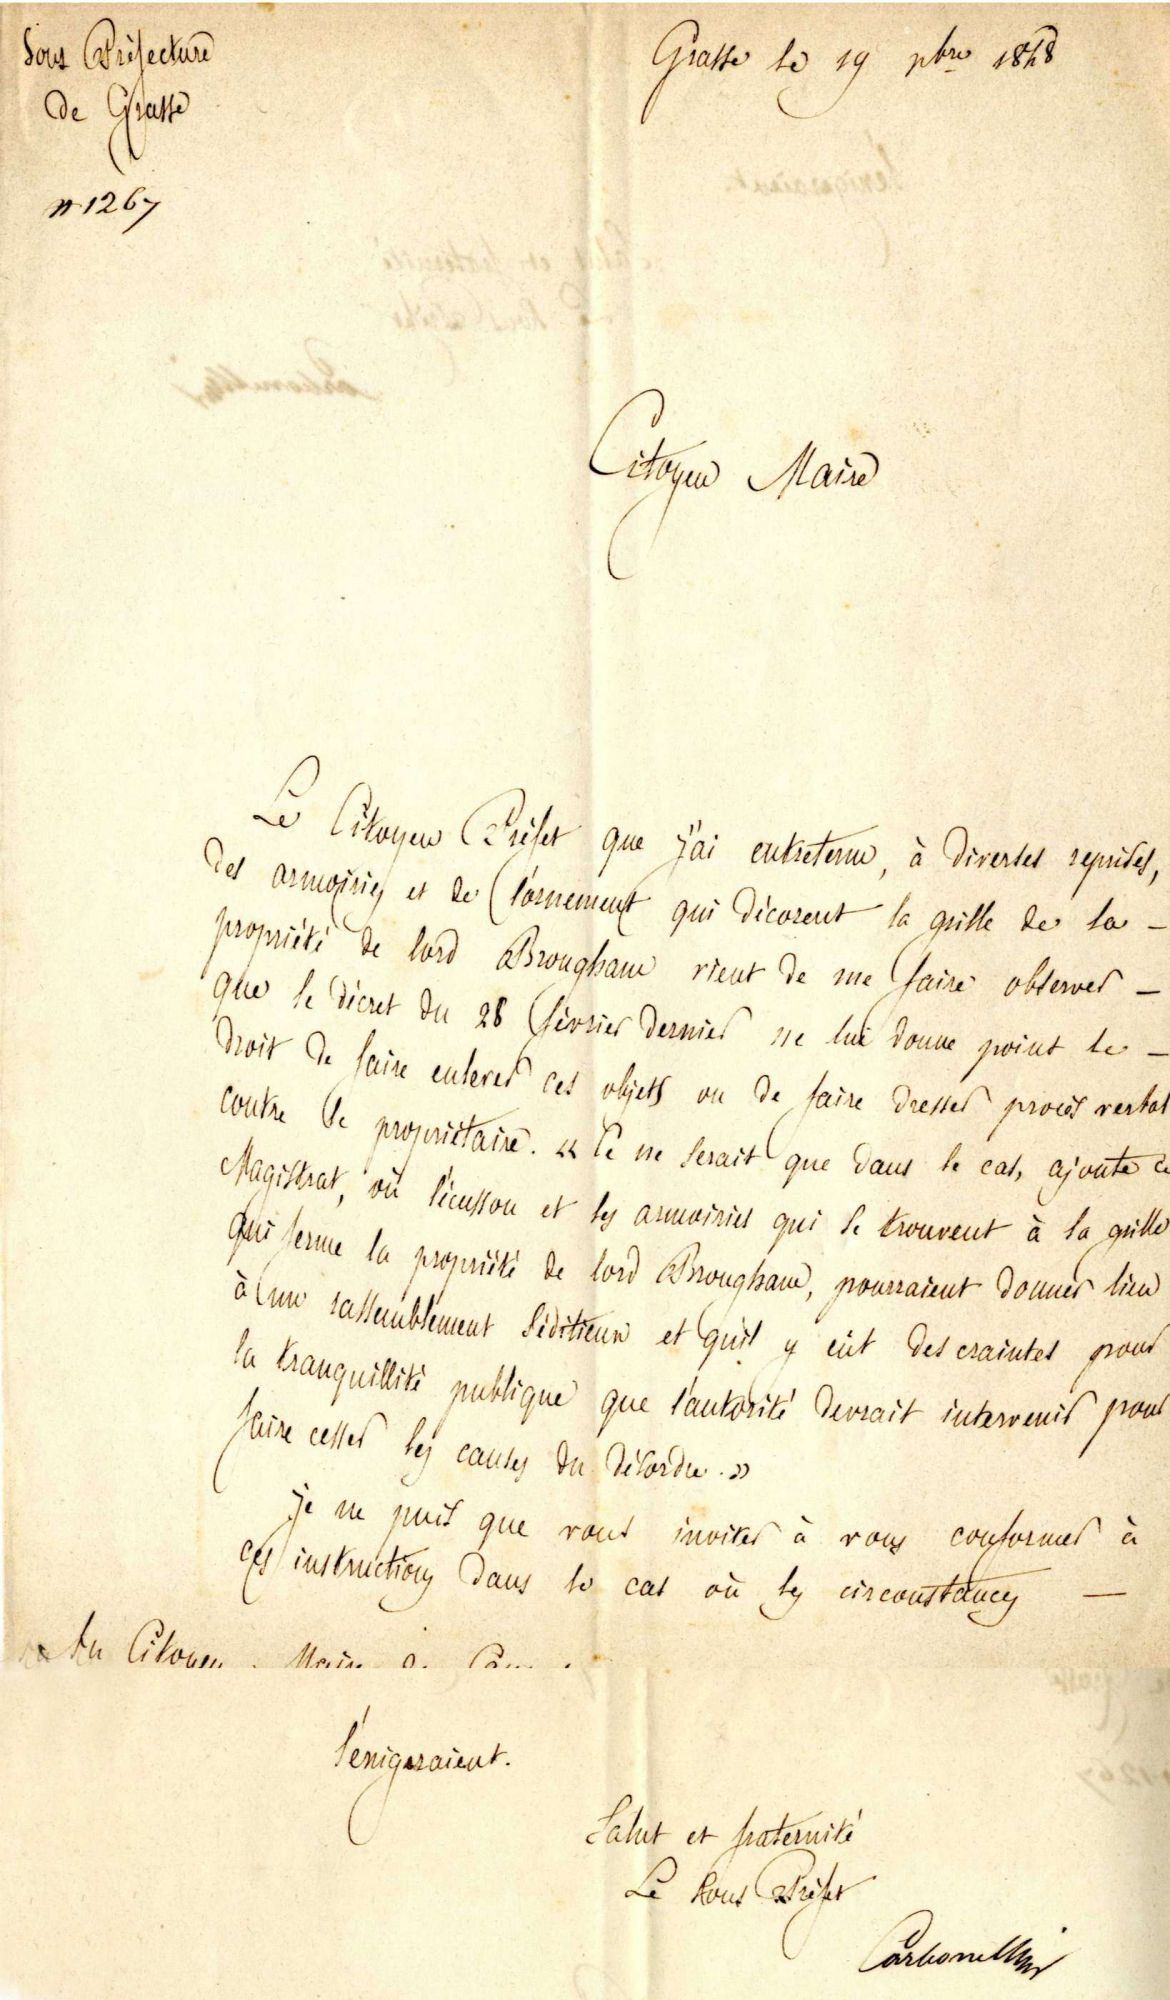 Sous Préfecture
de Grasse
n 1267
Grasse le 19 9bre 1848
Citoyen Maire
Le Citoyen Préfet que j'ai entretenu, à diverses reprises,
des armoiries et de l'ornement qui décorent la grille de la -
propriété de lord Brougham vient de me faire observer -
que le décret du 28 février dernier ne lui donne point le -
droit de faire enlever ces objets ou de faire dresser procès verbal
contre le propriétaire. « Ce ne serait que dans le cas, ajoute ce
Magistrat, où l'écusson et les armoiries qui se trouvent à la grille
qui ferme la propriété de lord Brougham, pourraient donner lieu
à un rassemblement séditieux et qu'il y eût des craintes pour
la tranquillité publique que l'autorité devrait intervenir pour
faire cesser les causes du désordre. »
je ne puis que vous inviter à vous conformer à
ces instructions dans le cas où les circonstances —
Au Citoyen Maire de
l'exigeraient.
Salut et fraternité
Le Sous Préfet